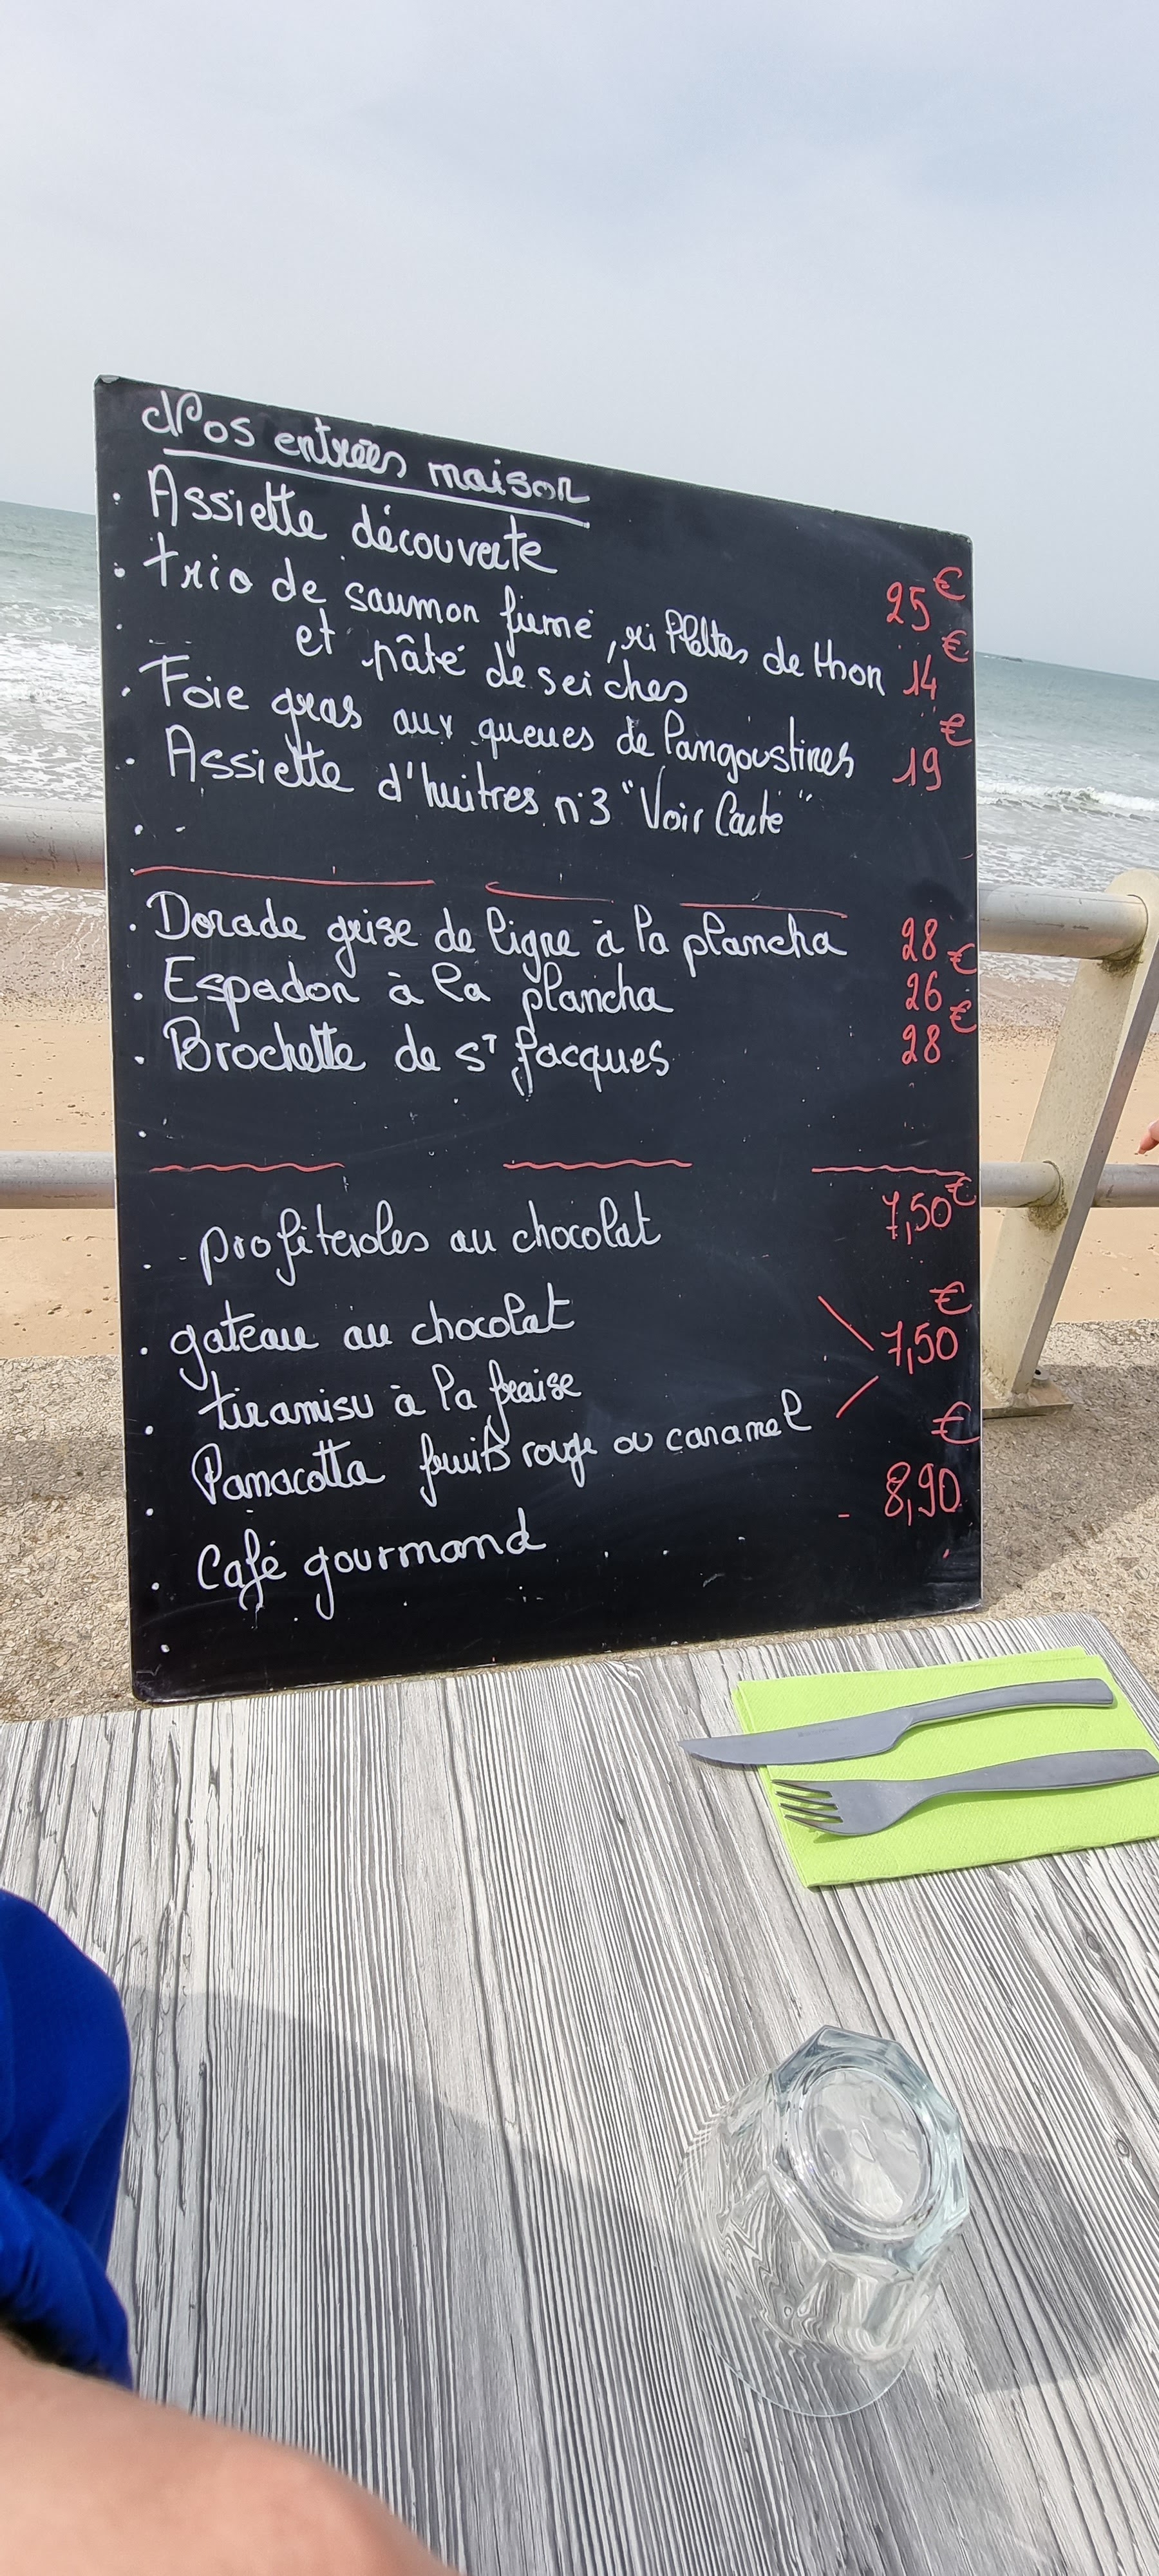 Nos entrées maison
. Assiette découverte 25 €
. trio de saumon fumé, rillettes de thon 14 €
et pâté de seiches
. Foie gras aux queues de langoustines 19 €
. Assiette d'huitres n°3 "Voir Carte"
. Dorade grise de ligne à la plancha 28 €
. Espadon à la plancha 26 €
. Brochette de St Jacques 28 €
. - profiteroles au chocolat 7,50 €
. gateau au chocolat
. tiramisu à la fraise 7,50 €
. Panacotta fruits rouge ou caramel
. Café gourmand - 8,90 €